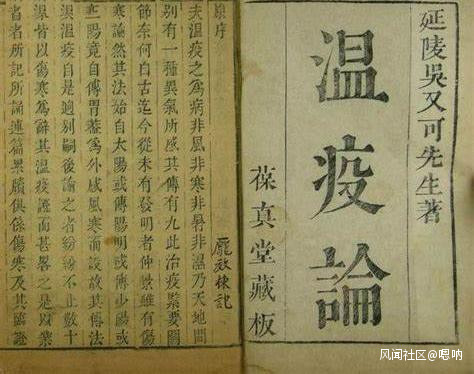 延陵吳又可先生著
温疫論
葆真堂藏板
原序
夫温疫之為病非風非寒非暑非濕乃天地間
別有一種異氣所感其傳有九此治疫緊要關
節奈何自古迄今從未有發明者仲景雖有傷
寒論然其法始自太陽或傳陽明或傳少陽或
三陽竟自傳胃蓋為外感風寒而設故其傳法
與温疫自是迥別嗣後論之者紛紛不止數十
家皆以傷寒為辭其温疫證而甚畧之是以業
醫者所記所誦連篇累牘俱係傷寒及其臨證
风闻社区@嗯呐